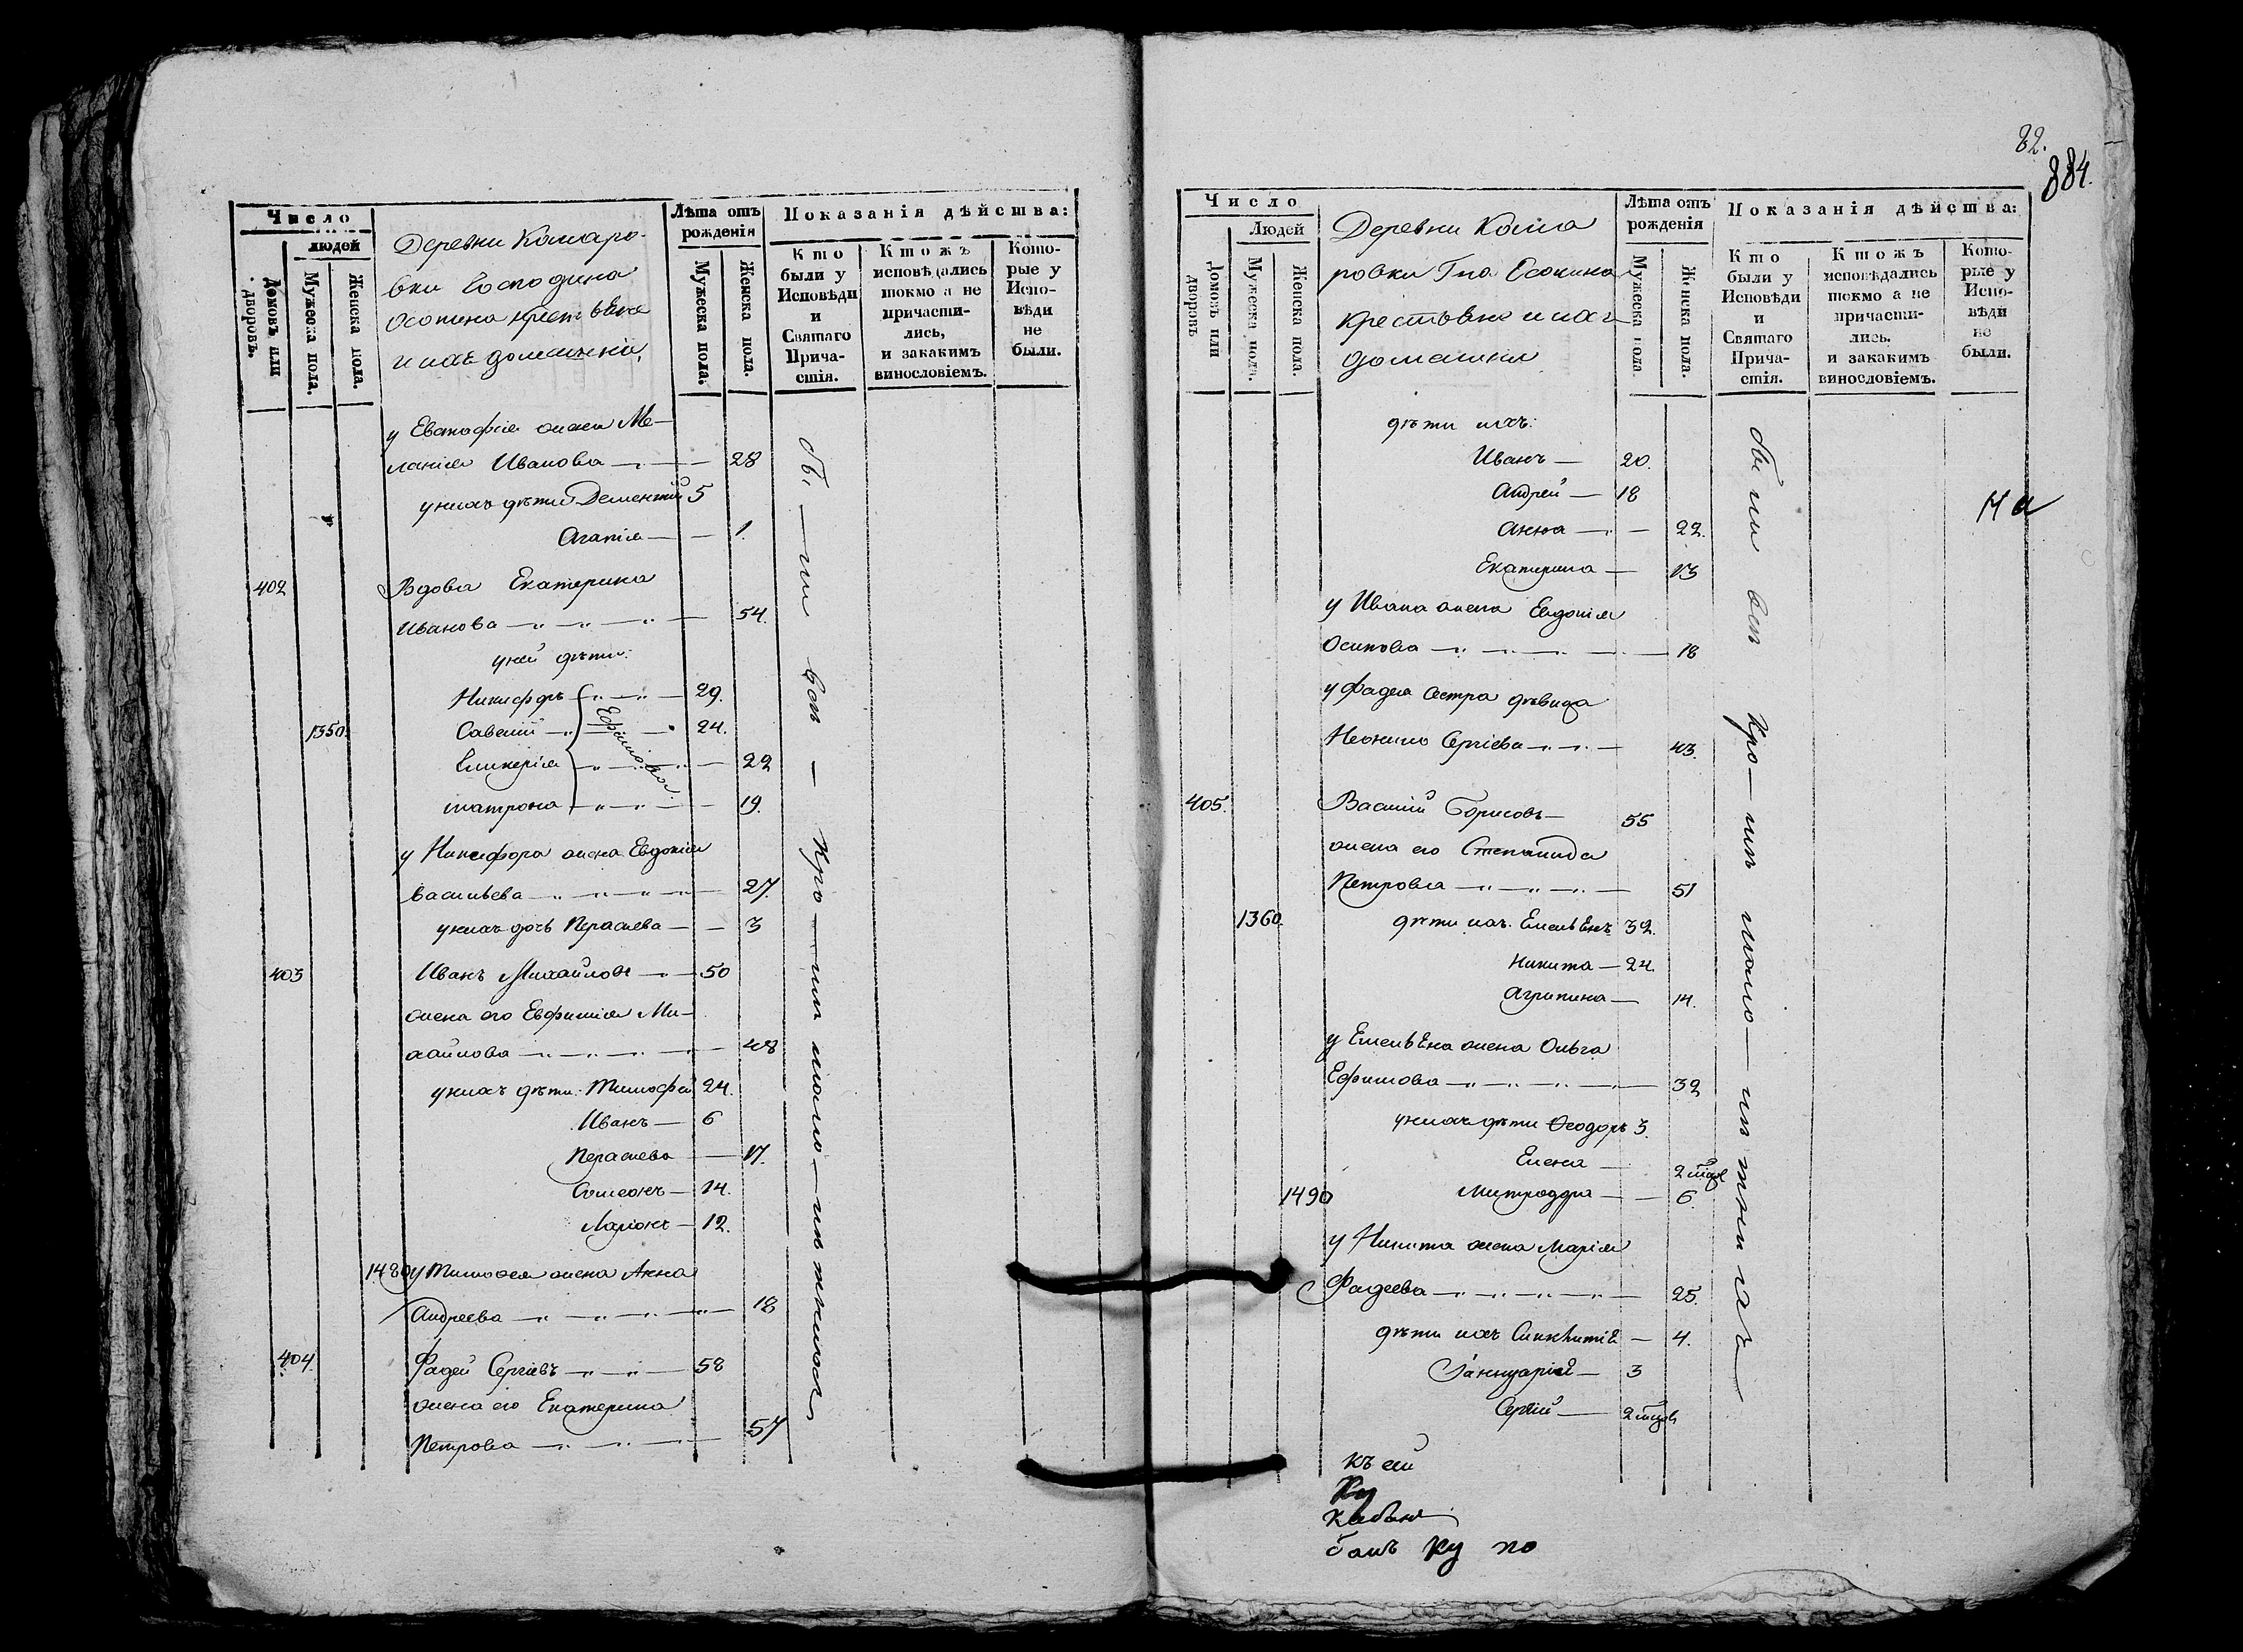 Число
людей
Домовъ или дворовъ.
Мужеска пола.
Женска пола.
Деревни Комаро-
вки Господина
Осокина крестьяне
и ихъ домашнiи
Лѣта отъ рожденiя
Мужеска пола.
Женска пола.
Показанiя дѣйства:
Кто были у Исповѣди и Святаго Прича-стiя.
Ктожъ исповѣдались токмо а не причасти-лись, и закакимъ винословiемъ.
Кото-рые у Испо-вѣди не были.
жена Ме-
ланiя Иванова 28
у нихъ дѣти Дементiй 5
Агапiя 1.
402 Вдова Екатерина
Иванова 54.
у ней дѣти:
Никифоръ 29.
1350. Савелiй 24.
Гликерiя 22
Матрона 19.
Ефимовы
у Никифора жена Евдокiя
Васильева 27.
у нихъ дочь Парасква 3
403 Иванъ Михайловъ 50
жена его Евфимiя Ми-
хайлова 48
у нихъ дѣти: Тимофей 24.
Иванъ 6
Парасква 17.
Симеонъ 14.
Ларiонъ 12.
1480 у Тимофея жена Анна
Андреева 18
404. Фадей Сергiевъ 58
жена его Екатерина
Петрова 57
бы-ли вси Кро-мѣ мало-лѣтнихъ
82.
884.
Число
Людей
Домовъ или дворовъ
Мужеска пола.
Женска пола.
Деревни Кома
ровки Гна Осокина
крестьяне и ихъ
домашнiи
Лѣта отъ рожденiя
Мужеска пола.
Женска пола.
Показанiя дѣйства:
Кто были у Исповѣди и Святаго Прича-стiя.
Ктожъ исповѣдались токмо а не причасти-лись. и закакимъ винословiемъ.
Кото-рые у Испо-вѣди не были.
дѣти ихъ:
Иванъ 20.
Андрей 18
Анна 22.
Екатерина 13
у Ивана жена Евдокiя
Осипова 18
у Фадея сестра дѣвица
Неонила Сергiева 43.
405. Василiй Борисовъ 55
жена его Степанида
Петрова 51
1360. дѣти ихъ. Емельянъ 32.
Никита 24.
Агрипина 14.
у Емельяна жена Ольга
Ефимова 32
у нихъ дѣти Ѳеодоръ 3.
Елена 2
1490 Митродора 6.
у Никиты жена Марiя
Фадеева 25.
дѣти ихъ 4.
Iаннуарiй 3
Сергiй 2
были вси Кро-мѣ мало-лѣтнихъ
На
къ ей
Ку
ку по